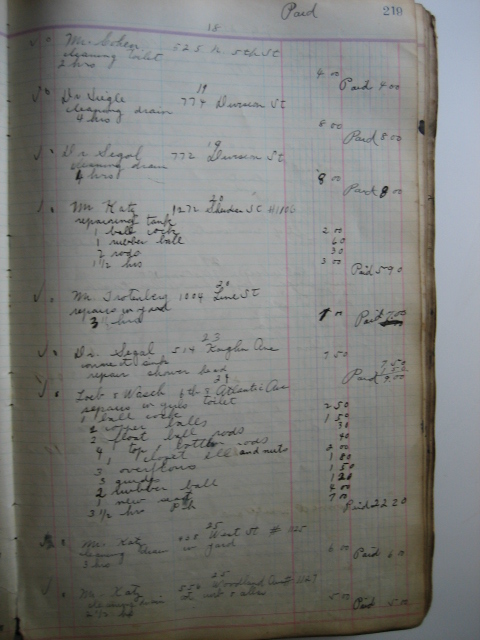 Paid 219
18
Mr. Cohen 525 N 5th St
cleaning toilet
2 hrs
4 00 Paid 4 00
19
Dr Siegle 774 Division St
cleaning drain
4 hrs
8 00 Paid 8 00
19
Dr Segal 772 Division St
cleaning drain
4 hrs
8 00 Paid 8 00
20
Mr Katz 1272
repairing tank
1 ball cock 2 00
1 rubber ball 60
2 rods 30
1 1/2 hrs 3 00
Paid 5 90
20
Mr. 1004 Line St
repairs in yard
3 hrs
Paid
23
Dr. Segal 514 Kaighn Ave
connect sink 7 50
repair shower head
Paid
24
Loeb & Wasch 6th & Atlantic Ave
repairs in toilet
1 ball cock 2 50
2 copper balls 1 50
2 float ball rods 30
4 top & bottom rods 40
1 closet and nuts
3 overflows
3 guides 1 50
2 rubber ball 1 20
1 new seat 4 00
3 1/2 hr 7 00
Paid 22 20
25
Mr. Katz West St
cleaning drain in yard
3 hrs
6 00 Paid 6 0
25
Mr. Katz Woodland Ave
cleaning drain
2 1/2 hr
5 00 Paid 5 00